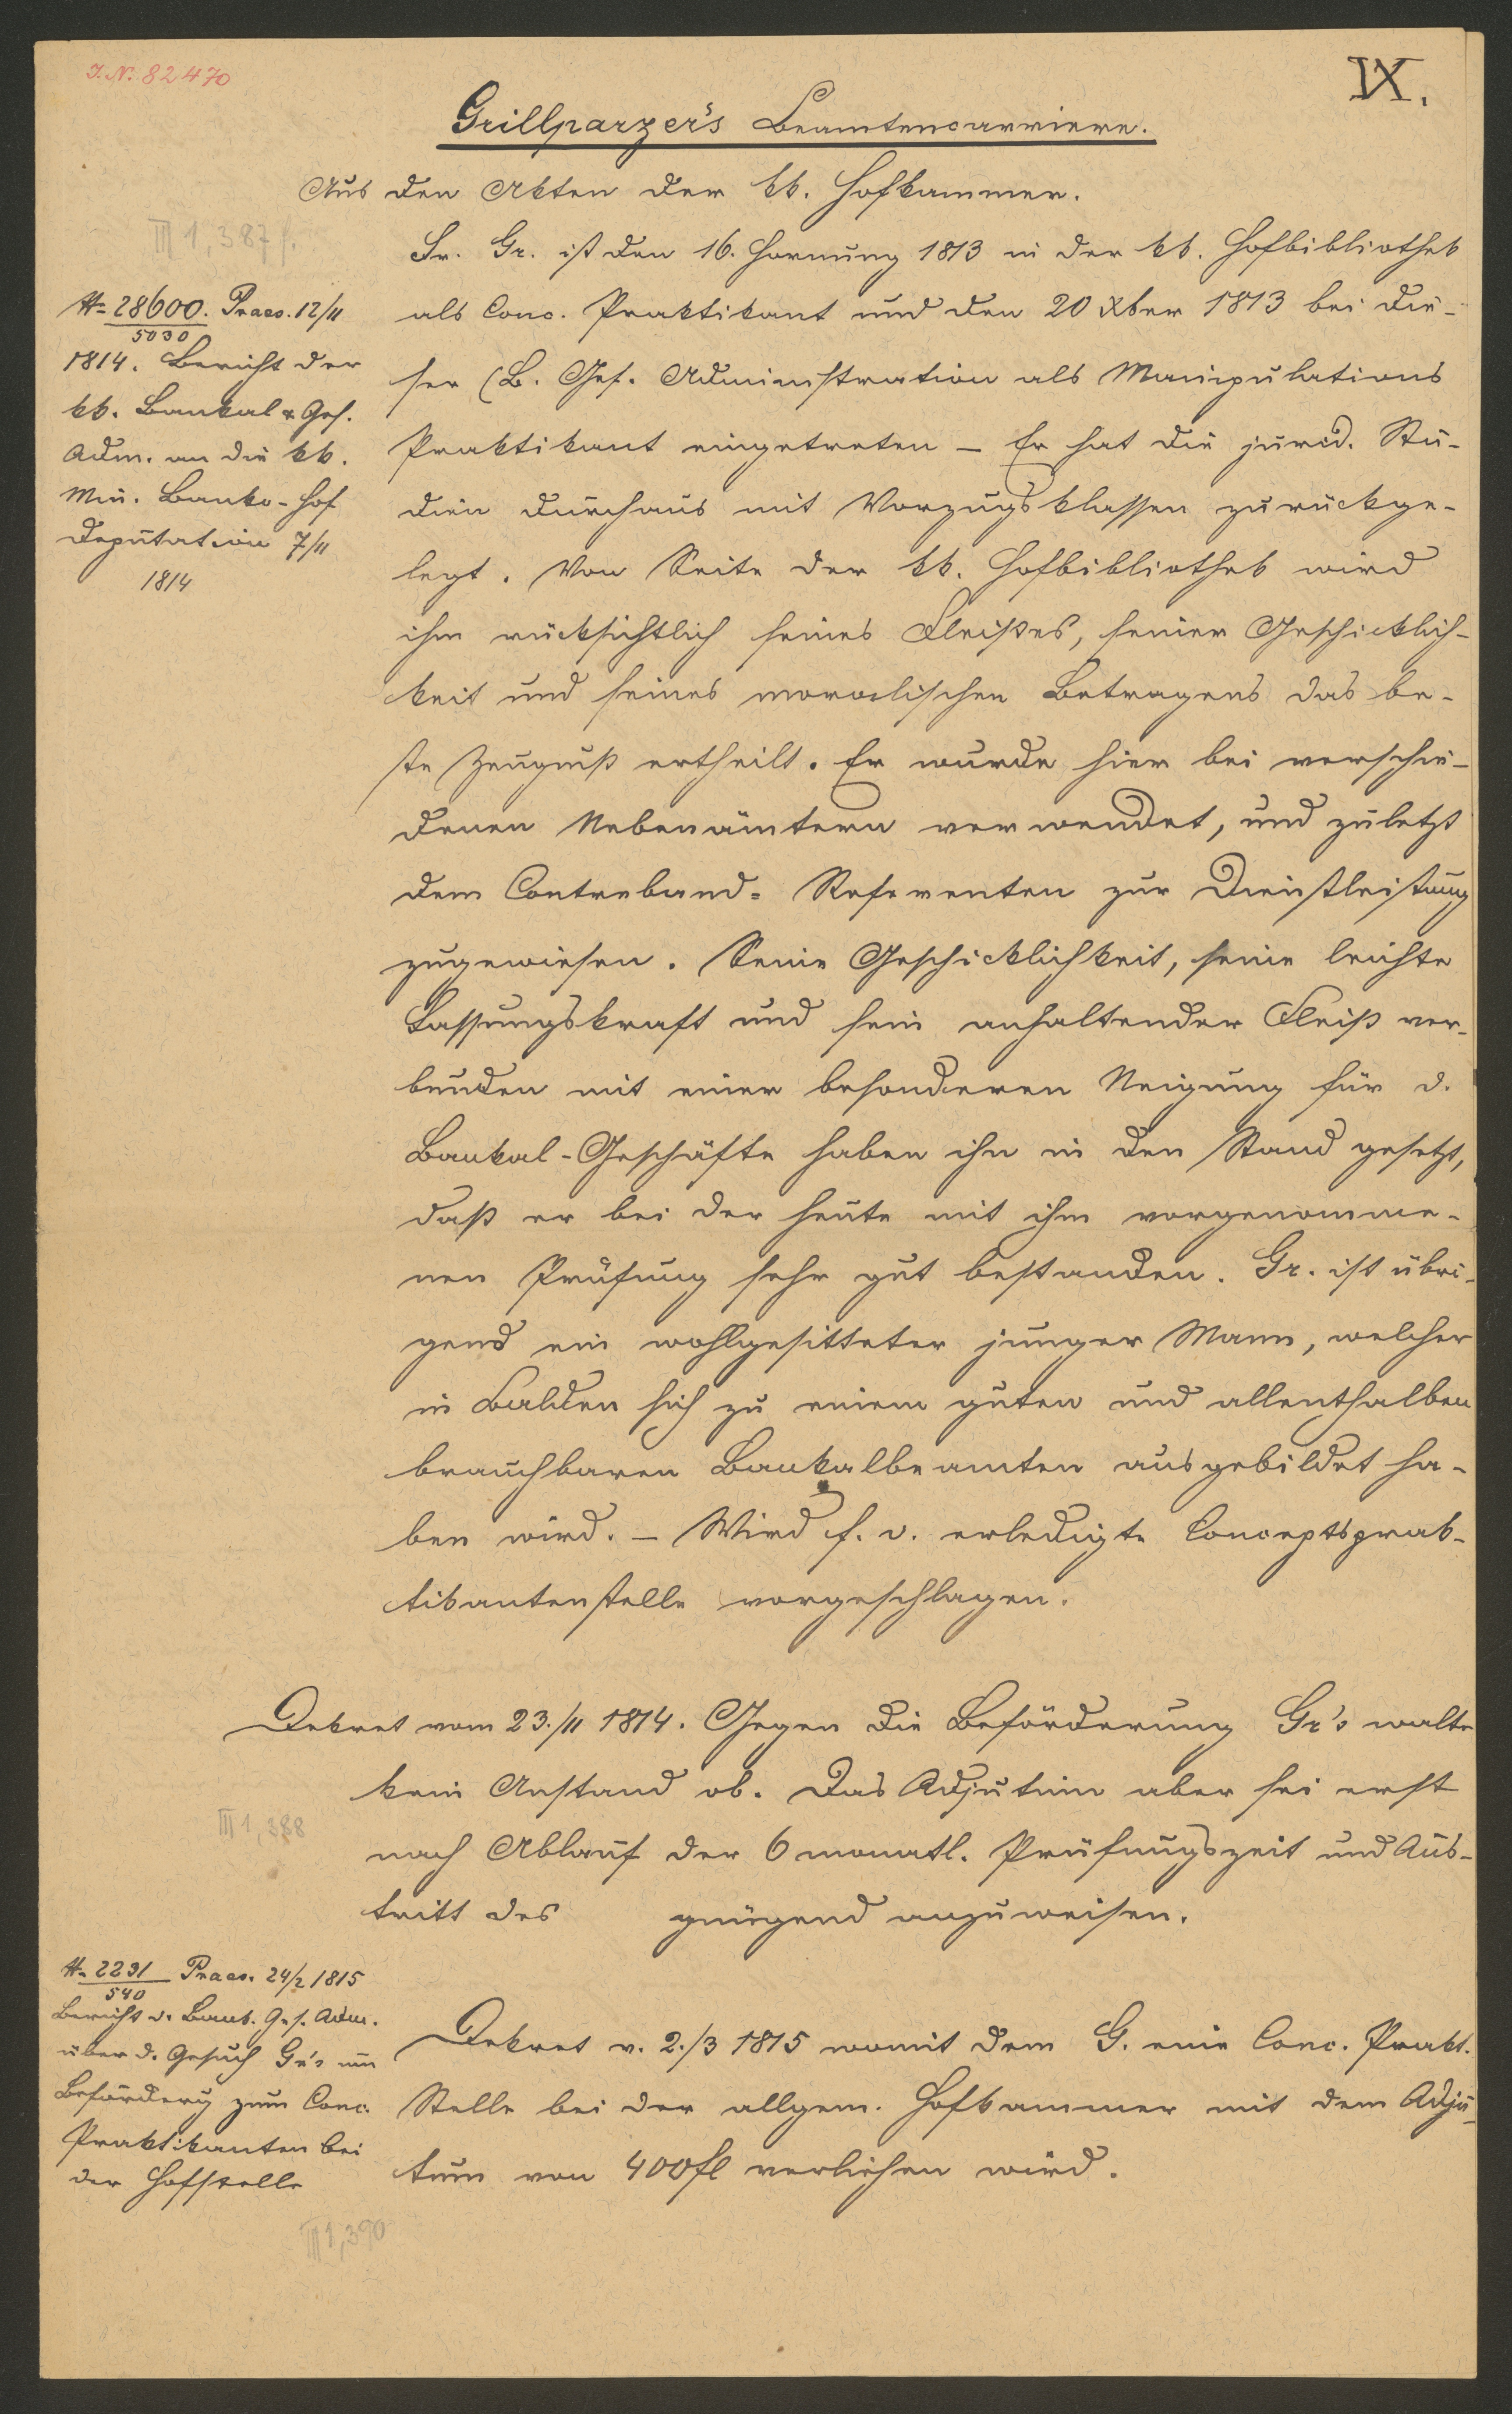 J. N. 82470
IX.
Grillparzer's Beamtencarriere.
Aus den Akten der kk. Hofkammer.
III 1, 387 f.
Fr. Gr. ist den 16. Hornung 1813 in der kk. Hofbibliothek
als Conc. Praktikant und den 20 Xber 1813 bei die-
ser (B. Gef. Administration als Manipulations
Praktikant eingetreten – Er hat die jurid. Stu-
dien durchaus mit Vorzugsklassen zurückge-
legt. Von Seite der kk. Hofbibliothek wird
ihm rücksichtlich seines Fleißes, seiner Geschicklich-
keit und seines moralischen Betragens das be-
ste Zeugniß ertheilt. Er wurde hier bei verschie-
denen Nebenämtern verwendet, und zuletzt
dem Contreband= Referenten zur Dienstleistung
zugewiesen. Seine Geschicklichkeit, seine leichte
Fassungskraft und sein anhaltender Fleiß ver-
bunden mit einer besonderen Neigung für d.
Bankal-Geschäfte haben ihn in den Stand gesetzt,
daß er bei der heute mit ihm vorgenomme-
nen Prüfung sehr gut bestanden. Gr. ist übri-
gens ein wohlgesitteter junger Mann, welcher
in Balden sich zu einem guten und allenthalben
brauchbaren Bankalbeamten ausgebildet ha-
ben wird. – Wird f. d. erledigte Conceptsprak-
tikantenstelle vorgeschlagen.
№ 28600. Praes. 12/11
5030
1814. Bericht der
kk. Bankal & Gef.
Adm. an die kk.
Min. Banko-Hof
Deputation 7/11
1814
Dekret vom 23./11 1814. Gegen die Beförderung Gr's walte
kein Anstand ob. Das Adjutum aber sei erst
nach Ablauf der 6 monatl. Prüfungszeit und Aus-
tritt des gnügend anzuweisen.
III 1, 388
№ 2291 Praes. 24/2 1815
540
Bericht d. Bank. Gef. Adm.
über d. Gesuch Gr's um
Beförderg zum Conc.
Praktikanten bei
der Hofstelle
Dekret v. 2./3 1815 womit dem G. eine Conc. Prakt.
Stelle bei der allgem. Hofkammer mit dem Adju-
tum von 400 fl verliehen wird.
III 1, 390